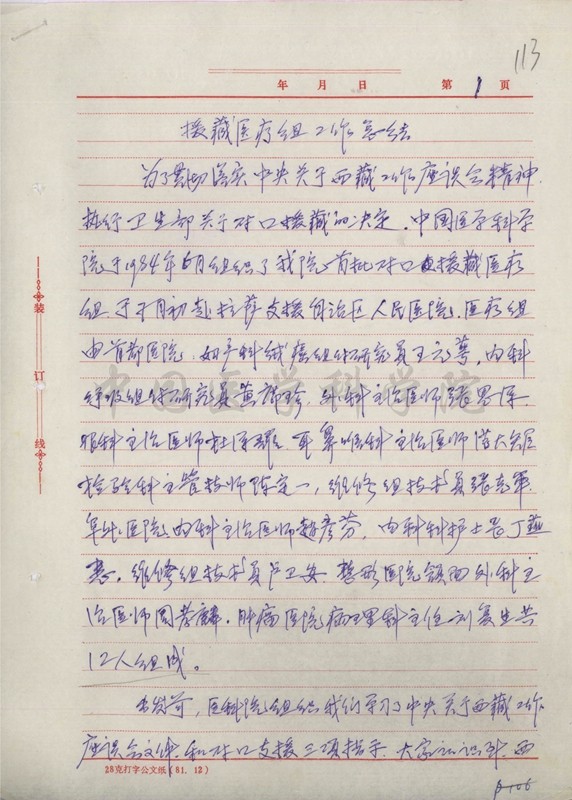 113
年 月 日 第 1 页
援藏医疗组工作总结
为了贯彻落实中央关于西藏工作座谈会精神,
执行卫生部关于对口援藏的决定,中国医学科学
院于1984年6月组织了我院首批对口援藏医疗
组于7月初赴拉萨支援自治区人民医院。医疗组
由首都医院:妇产科绒癌组付研究员王元萼,内科
呼吸组付研究员黄席珍,外科主治医师
眼科主治医师杜,耳鼻喉科主治医师
检验科主管技师陈定一,维修组技术员张志军
阜外医院内科主治医师赵彦芬,内科科护士长丁
维修组技术员卢卫安,整形医院颌面外科主
治医师周孝麟,肿瘤医院病理科主任刘复生共
12人组成。
出发前,医科院组织我们学习了中央关于西藏工作
座谈会文件,和对口支援三项指示,大家认识到,西
装
订
线
中国医学科学院
28克打字公文纸(81.12)